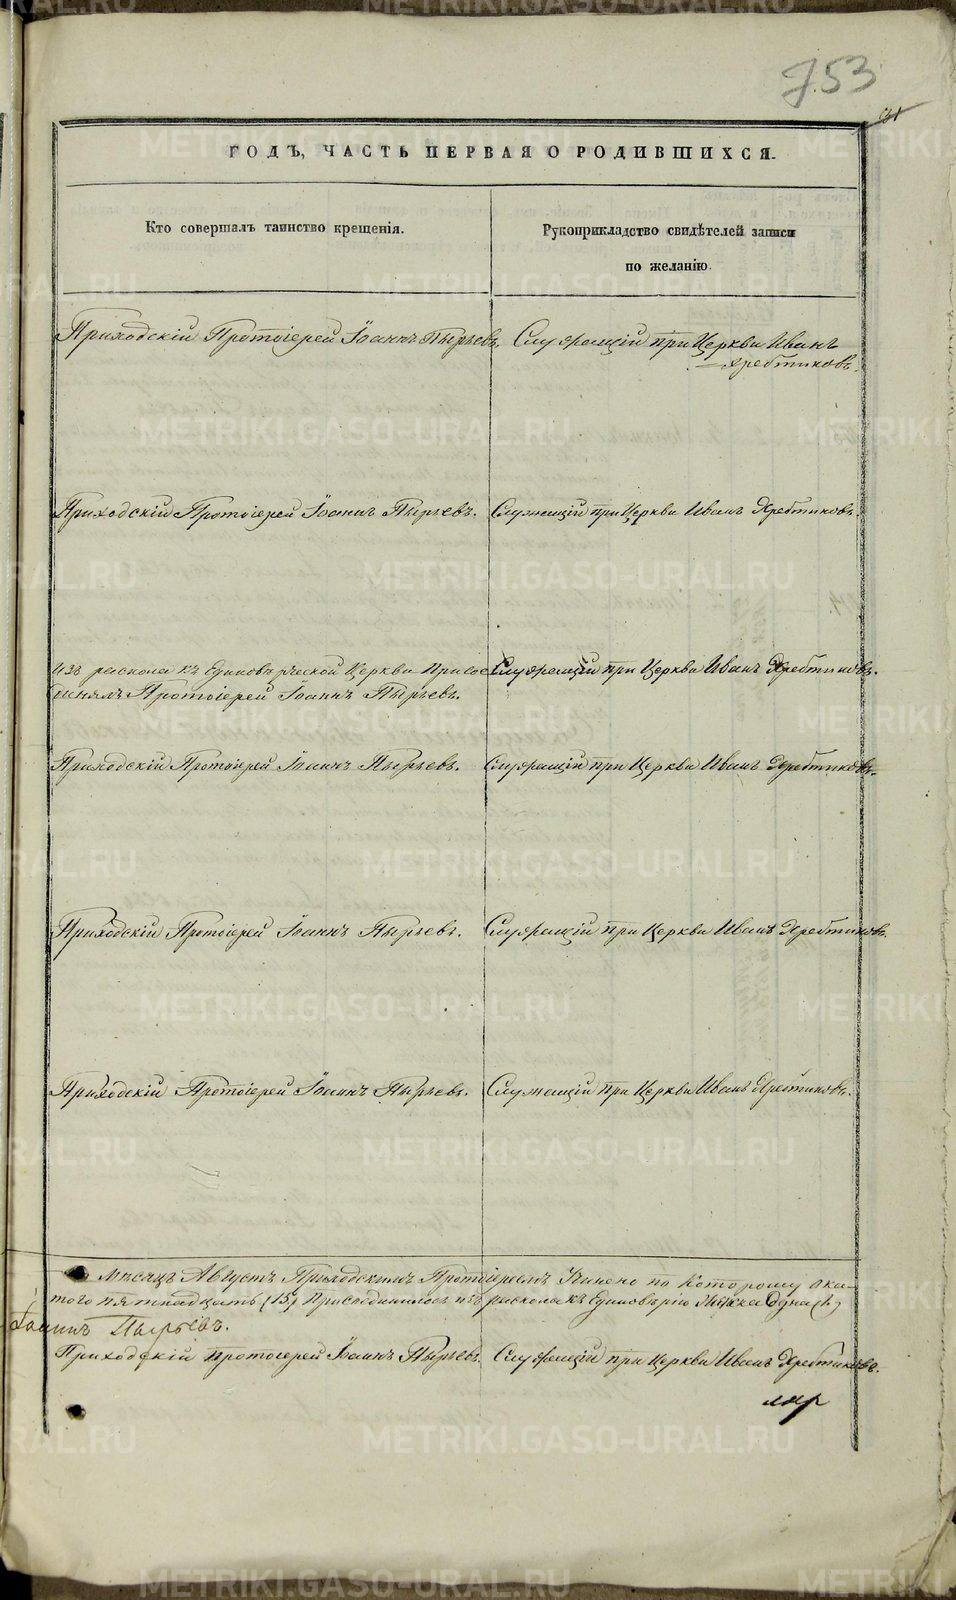 753
ГОДЪ, ЧАСТЬ ПЕРВАЯ О РОДИВШИХСЯ.
Кто совершалъ таинство крещенія.
Рукоприкладство свидѣтелей записи
по желанію.
Приходскій Протоіерей Іоаннъ Пырьевъ.
Служащій при Церкви Иванъ
Хребтиковъ.
Приходскій Протоіерей Іоаннъ Пырьевъ.
Служащій при Церкви Иванъ Хребтиковъ.
изъ раскола къ Единовѣрческой Церкви Присое
Протоіерей Іоаннъ Пырьевъ.
Служащій при Церкви Иванъ Хребтиковъ.
Приходскій Протоіерей Іоаннъ Пырьевъ.
Служащій при Церкви Иванъ Хребтиковъ.
Приходскій Протоіерей Іоаннъ Пырьевъ.
Служащій при Церкви Иванъ Хребтиковъ.
Приходскій Протоіерей Іоаннъ Пырьевъ.
Служащій при Церкви Иванъ Хребтиковъ.
Мѣсяцъ Августъ Приходскимъ Протоіереемъ по Которому ока-
того пятнадцать (15) Присоединилось изъ раскола къ Единовѣрію одна (1)
Іоаннъ Пырьевъ.
Приходскій протоіерей Іоаннъ Пырьевъ.
Служащій при Церкви Иванъ Хребтиковъ.
METRIKI.GASO-URAL.RU